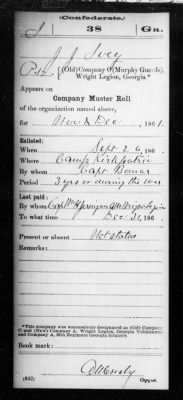 (Confederate.)
J 38 Ga.
J. J. Ivey
Pvt., (Old) Company C (Murphy Guards),
Wright Legion, Georgia.*
Appears on
Company Muster Roll
of the organization named above,
for Nov & Dec, 1861.
Enlisted:
When Sept 26, 186 .
Where Camp Kirkpatrick
By whom Capt Bomar
Period 3 yrs or during the war
Last paid:
By whom Capt
To what time Dec 31, 186 .
Present or absent Not stated
Remarks:
*This company was successively designated as (Old) Company
C and (New) Company A, Wright Legion, Georgia Volunteers
and Company A, 38th Regiment Georgia Infantry.
Book mark:
(642)
Copyist.